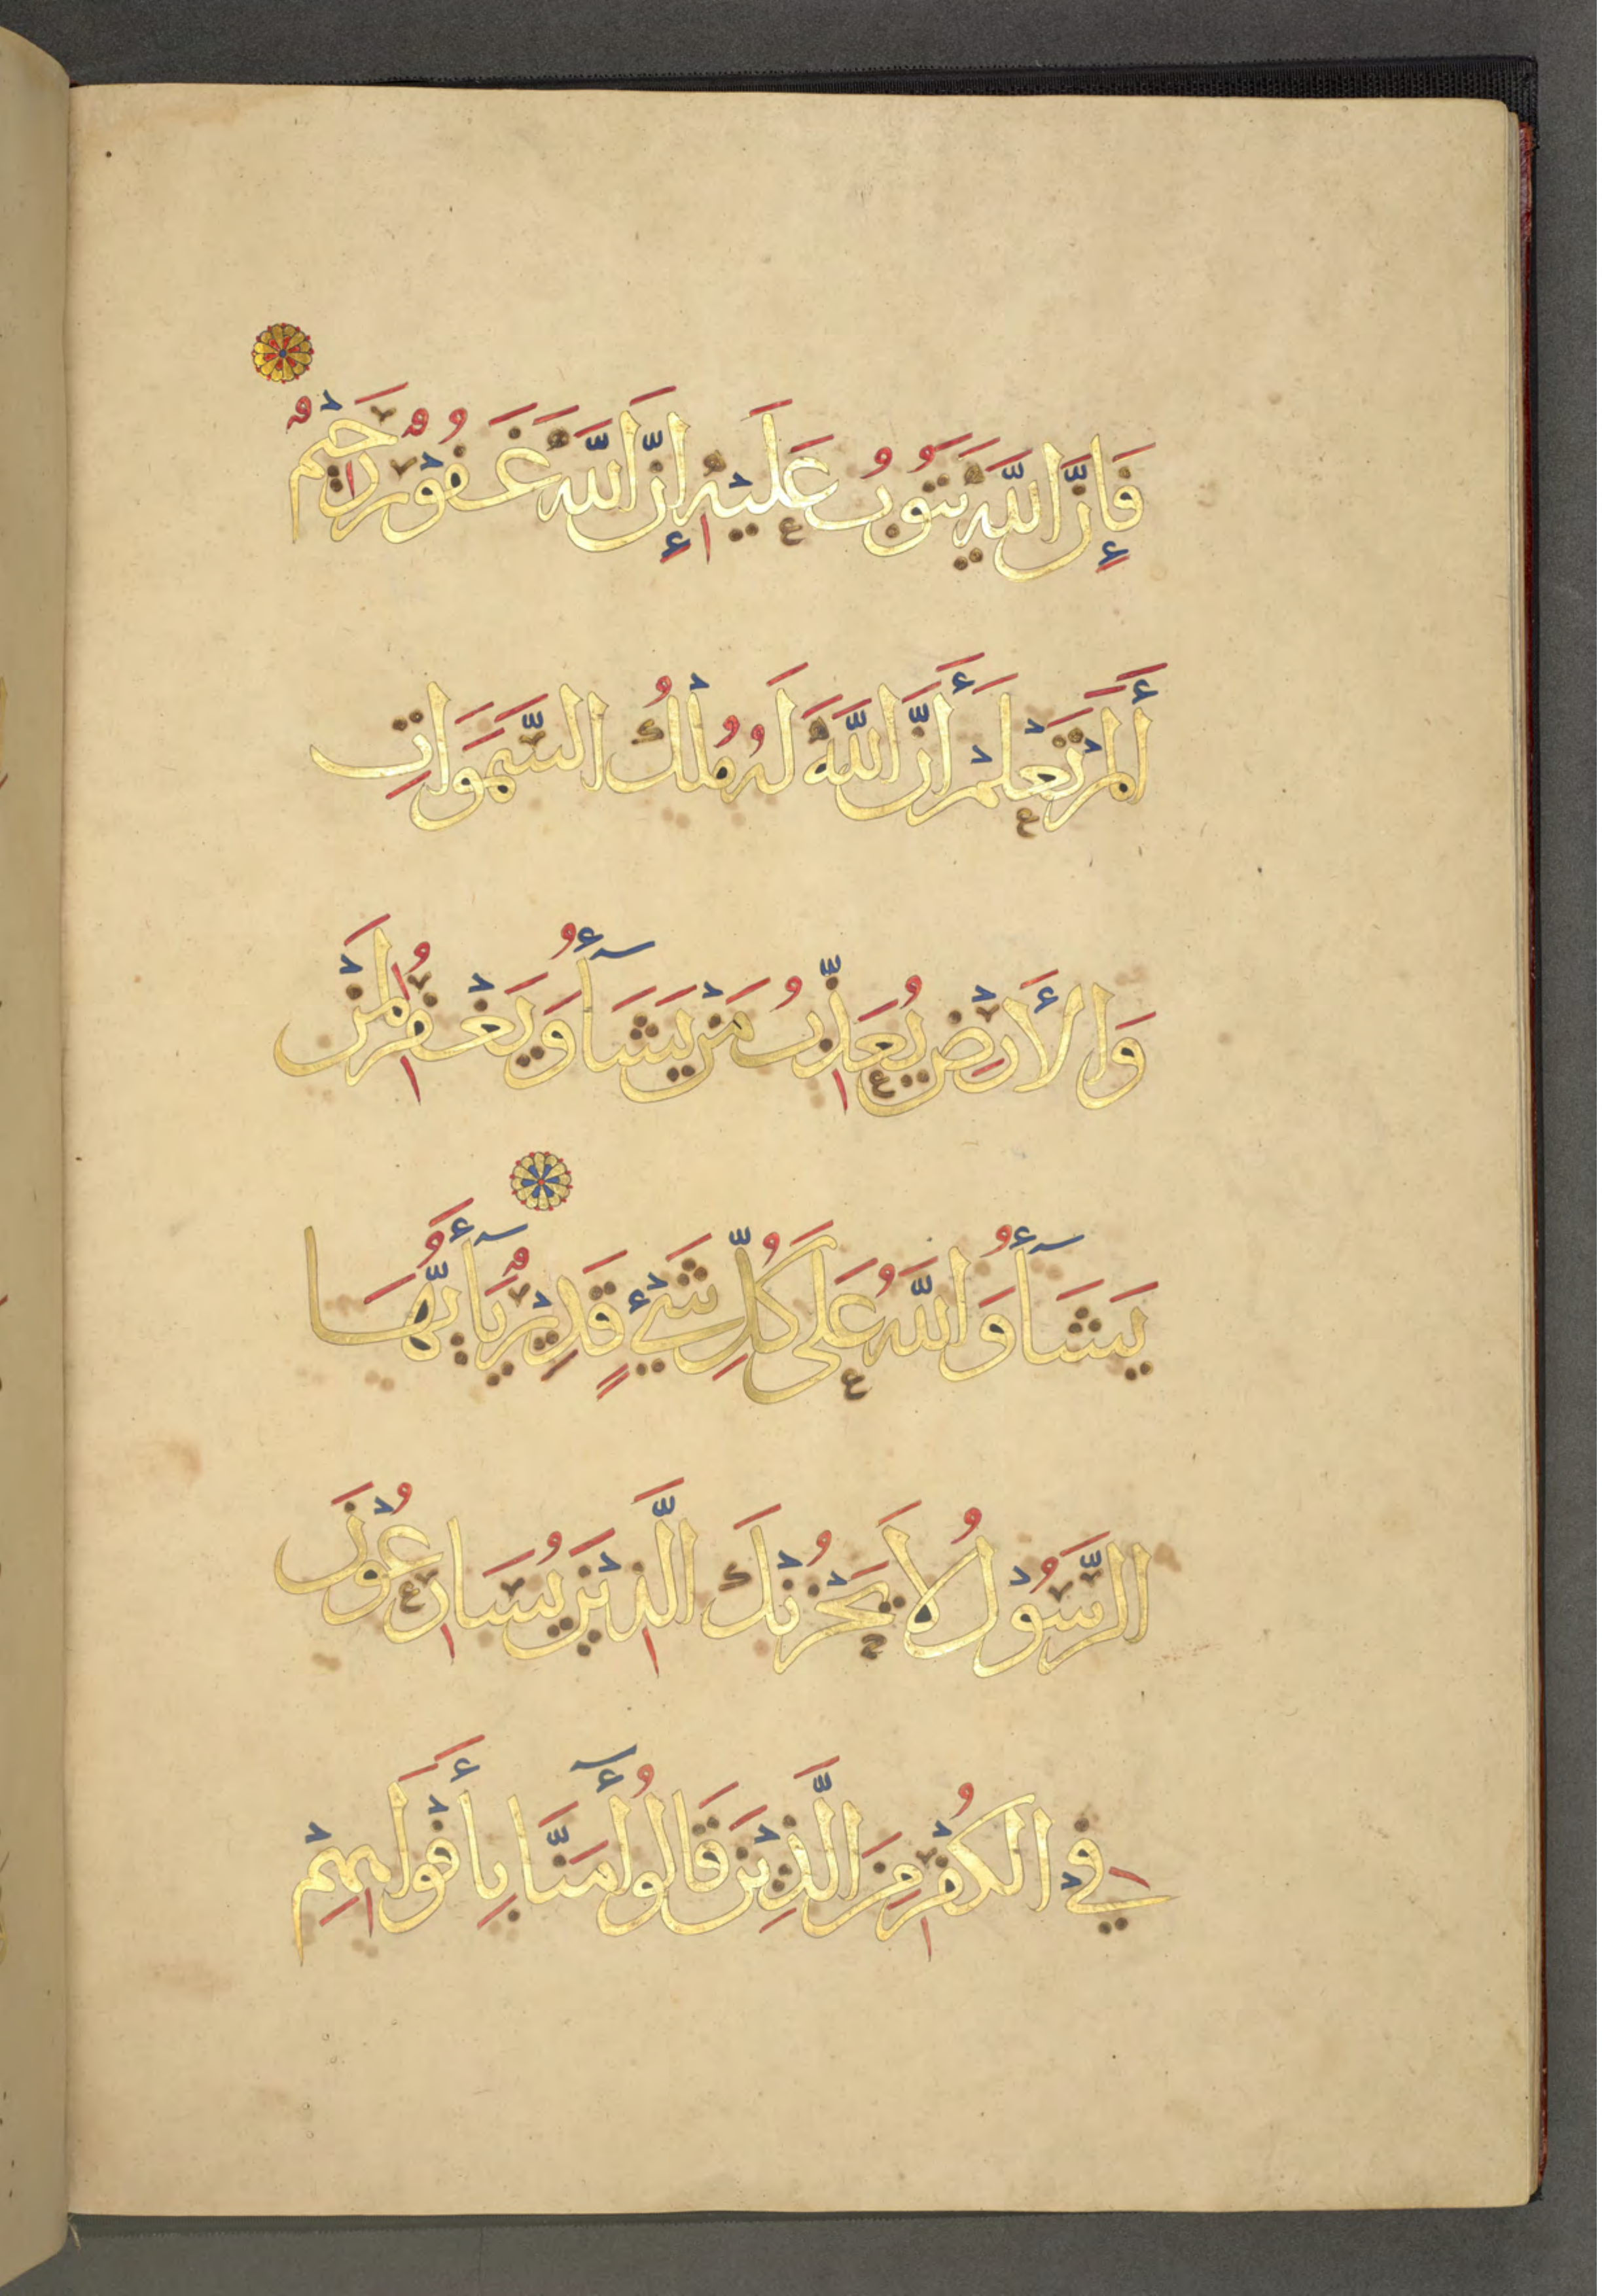 فَإِنَّ اللَّهَ يَتُوبُ عَلَيْهِ إِنَّ اللَّهَ غَفُوْرٌ رَحِيْمٌ
أَلَمْ تَعْلَمْ أَنَّ اللَّهَ لَهُ مُلْكُ السَّمَوَاتِ
وَالأَرْضِ يُعَذِّبُ مَنْ يَشَآءُ وَيَغْفِرُ لِمَنْ
يَشَآءُ وَاللَّهُ عَلَى كُلِّ شَيْءٍ قَدِيْرٌ يَآأَيُّهَا
الرَّسُوْلُ لَا يَحْزُنْكَ الَّذِيْنَ يُسَارِعُوْنَ
فِي الْكُفْرِ مِنَ الَّذِيْنَ قَالُوا أٓمَنَّا بِأَفْوَاهِهِمْ